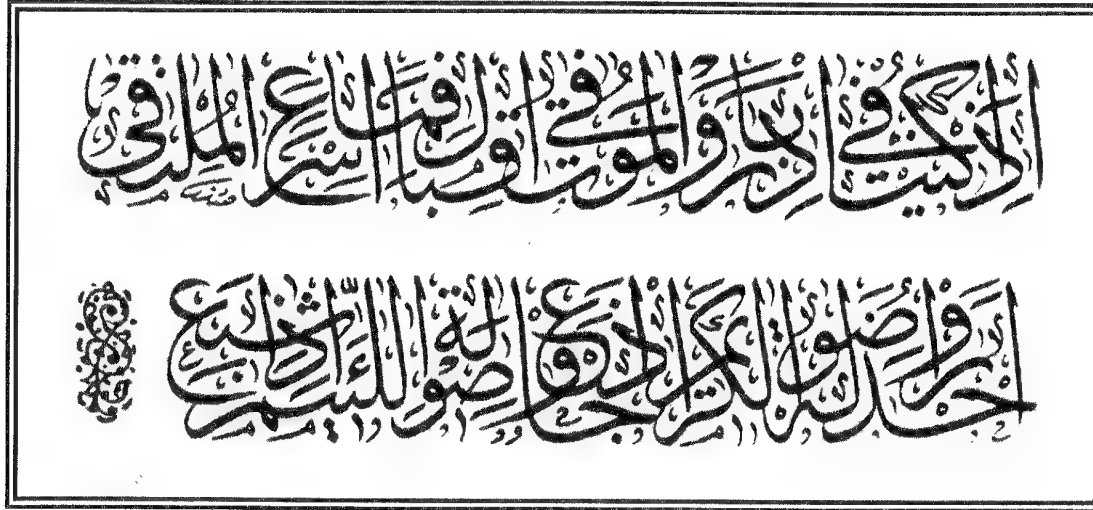 إذا كنت في إدبار والموت في إقبال فما أسرع الملتقى
احذروا صولة الكريم إذا جاع وصولة اللئيم إذا شبع